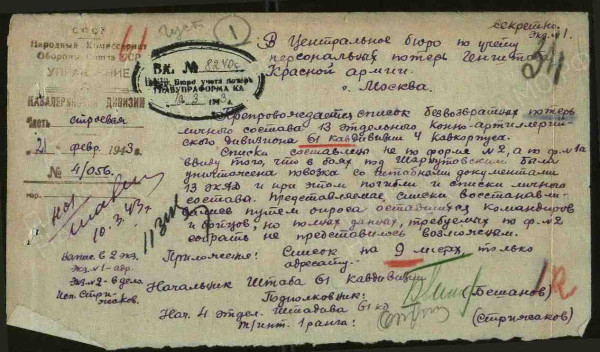 секретно.
Экз. №1.
С С С Р
Народный Комиссариат
Обороны Союза ССР
УПРАВЛЕНИЕ
61
КАВАЛЕРИЙСКОЙ ДИВИЗИИ
Часть строевая
21 февр. 1943 г.
№ 4/056.
гор.
10.3.43 г.
Напис. в 2 экз.
Экз. №1 - адр.
Экз. №2 - в дела
Исп. Стри-
жаков.
1
ВХ. №
Бюро учета потерь
ГЛАВУПРАФОРМА КА
В Центральное бюро по учёту
персональных потерь Генштаба
Красной армии.
г. Москва.
Препровождается список безвозвратных потерь
личного состава 13 отдельного Конно-артиллерий-
ского дивизиона 61 кавдивизии 4 кавкорпуса.
Списки составлены не по форме №2, а по ф. №1а
ввиду того, что в боях под Шарнутовским была
уничтожена повозка со штабными документами
13 ОКАД и при этом погибли и списки личного
состава. Представляемые списки восстанавли-
вались путем опроса оставшихся командиров
и бойцов, но полных данных, требуемых по ф. №2
собрать не представилось возможным.
Приложение: Список на 9 листах только
адресату.
Начальник Штаба 61 кавдивизии
Подполковник:
(Бешанов)
Нач. 4 отдел. Штадива 61 кд
т/инт. 1 ранга:
(Стрижаков)